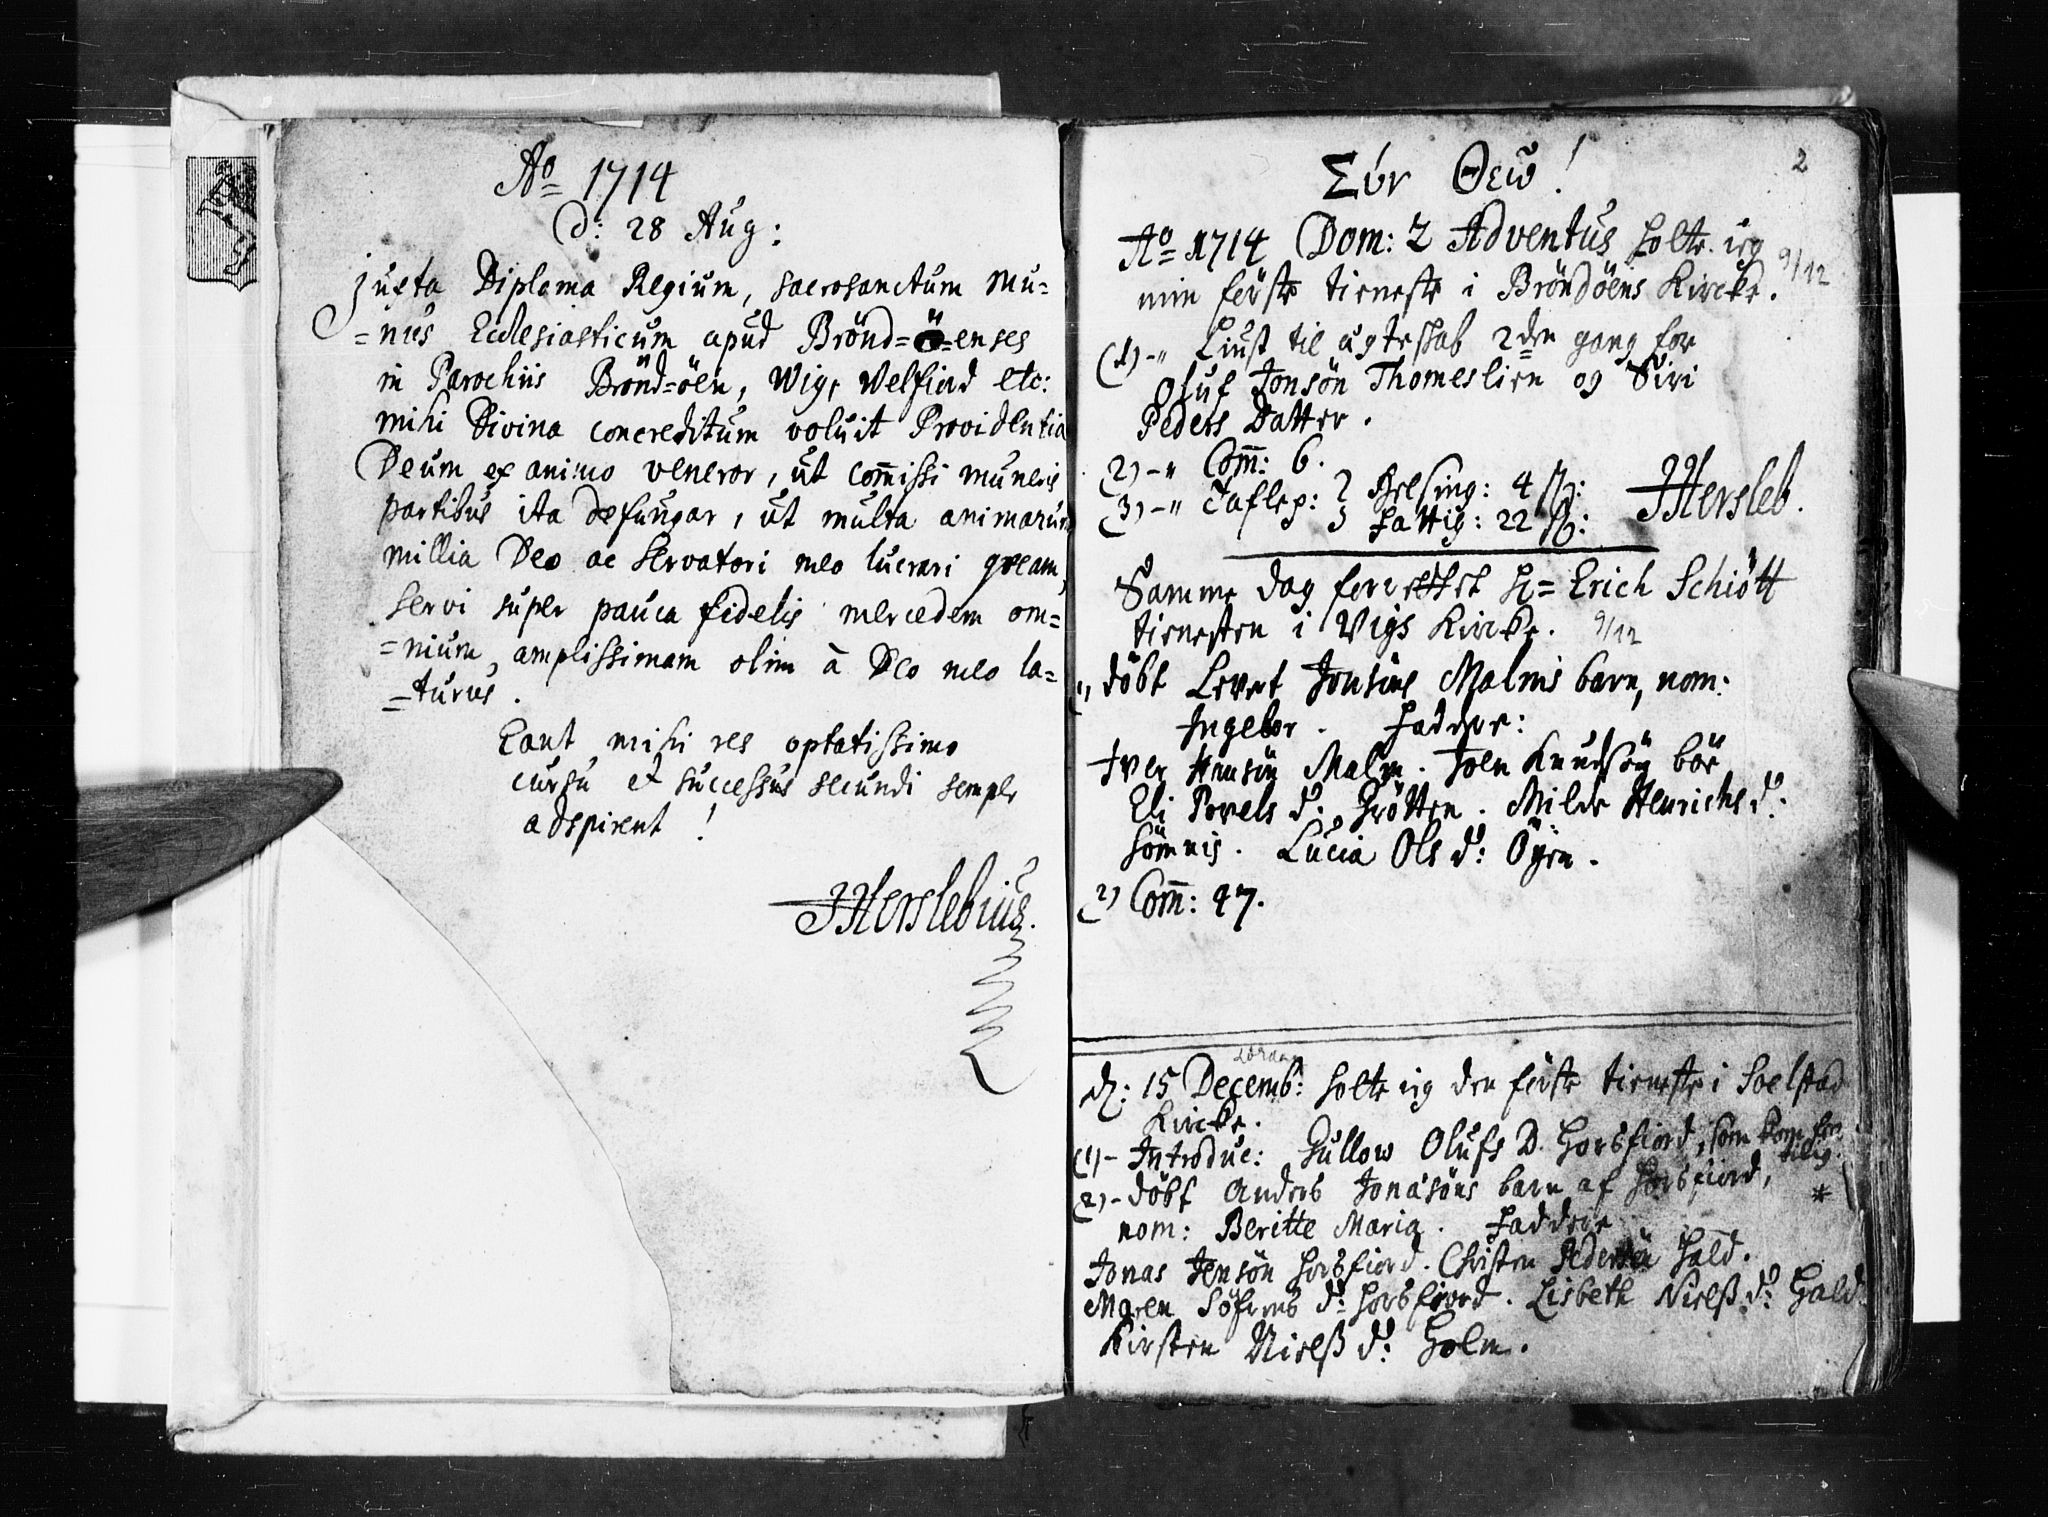 Aº= 1714
d: 28 Aug:
Juxta Diploma Regium, sacrosanctum mu=
=nus Ecclesiasticum apud Brönd=ö=enses
in Parochiis Brönd=öen, Wig, Welfiord etc:
mihi Divina concreditum voluit Providentia
Deum ex animo veneror, ut com̄issi muneris
partibus ita defungar, ut multa animarum
millia Deo ac servatori meo lucrari qveam,
servi super pauca fidelis mercedem om=
=nium, amplissimam olim à Deo meo la=
=turus.
Eant mihi res optatissimo
cursu et successus secundi semper
adspirent!
JHerslebius.
2
Σύν Θεῷ!
Aº= 1714 Dom: 2 Adventus holte ieg
9/12
min förste tieneste i Bröndöens Kircke.
(1) -" Liust til egteskab 2den gang for
Oluf Jonsön Thomeslien og Siri
Peders Datter.
(2) -" Com̄: 6.
(3) -" Taflep: Helsing: 4 ß:
Fattig: 22 ß:
JHersleb.
Samme dag forrettet H= Erich Schiött
tienesten i Vigs Kircke. 9/12
1, döbt Levet Jensöns Malmis barn, nom:
Ingebor. Faddere:
Iver Hansön Malm. Joen Knudsön böe
Eli Povels d: Gröttem. Milde Henrichs d:
Sömnis. Lucia Ols d: Öyen.
2) Com̄: 47.
Lördag
d: 15 Decemb: holte ieg den förste tieneste i Soelstad
Kircke.
(1) - Introduc: Gullow Olufs D. Horsfiord, som kom for
tilig.
(2) - döbt Anders Jonasöns barn af Horsfiord, *
nom: Beritte Maria. Faddere
Jonas Jensön Horsfiord. Christen Pedersön Hald.
Maren Söfrens d: Horsfiord. Lisbeth Nielß d: Hald
Kirsten Nielß d: Holm.